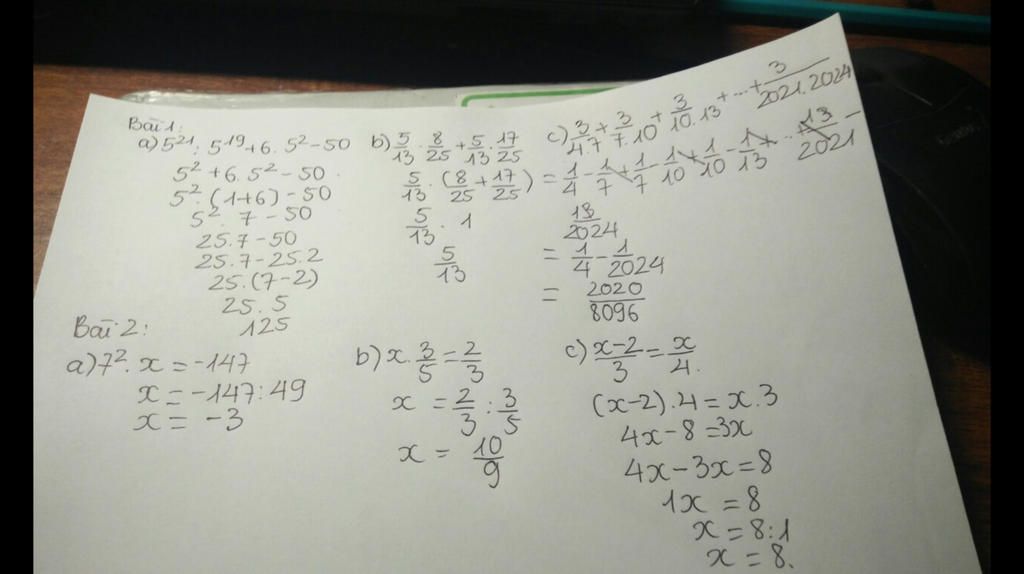 Bài 1:
a) 5²¹ : 5¹⁹ + 6 . 5² - 50
5² + 6 . 5² - 50
5² . (1+6) - 50
5² . 7 - 50
25.7 - 50
25.7 - 25.2
25.(7-2)
25.5
125
b) 5/13 . 8/25 + 5/13 . 17/25
5/13 . (8/25 + 17/25)
5/13 . 1
5/13
c) 3/4.7 + 3/7.10 + 3/10.13 + ... + 3/2021.2024
= 1/4 - 1/7 + 1/7 - 1/10 + 1/10 - 1/13 + ... 13/2021 -
13/2024
= 1/4 - 1/2024
= 2020/8096
Bài 2:
a) 7² . x = -147
x = -147 : 49
x = -3
b) x . 3/5 = 2/3
x = 2/3 : 3/5
x = 10/9
c) x-2/3 = x/4.
(x-2).4 = x.3
4x - 8 = 3x
4x - 3x = 8
1x = 8
x = 8:1
x = 8.